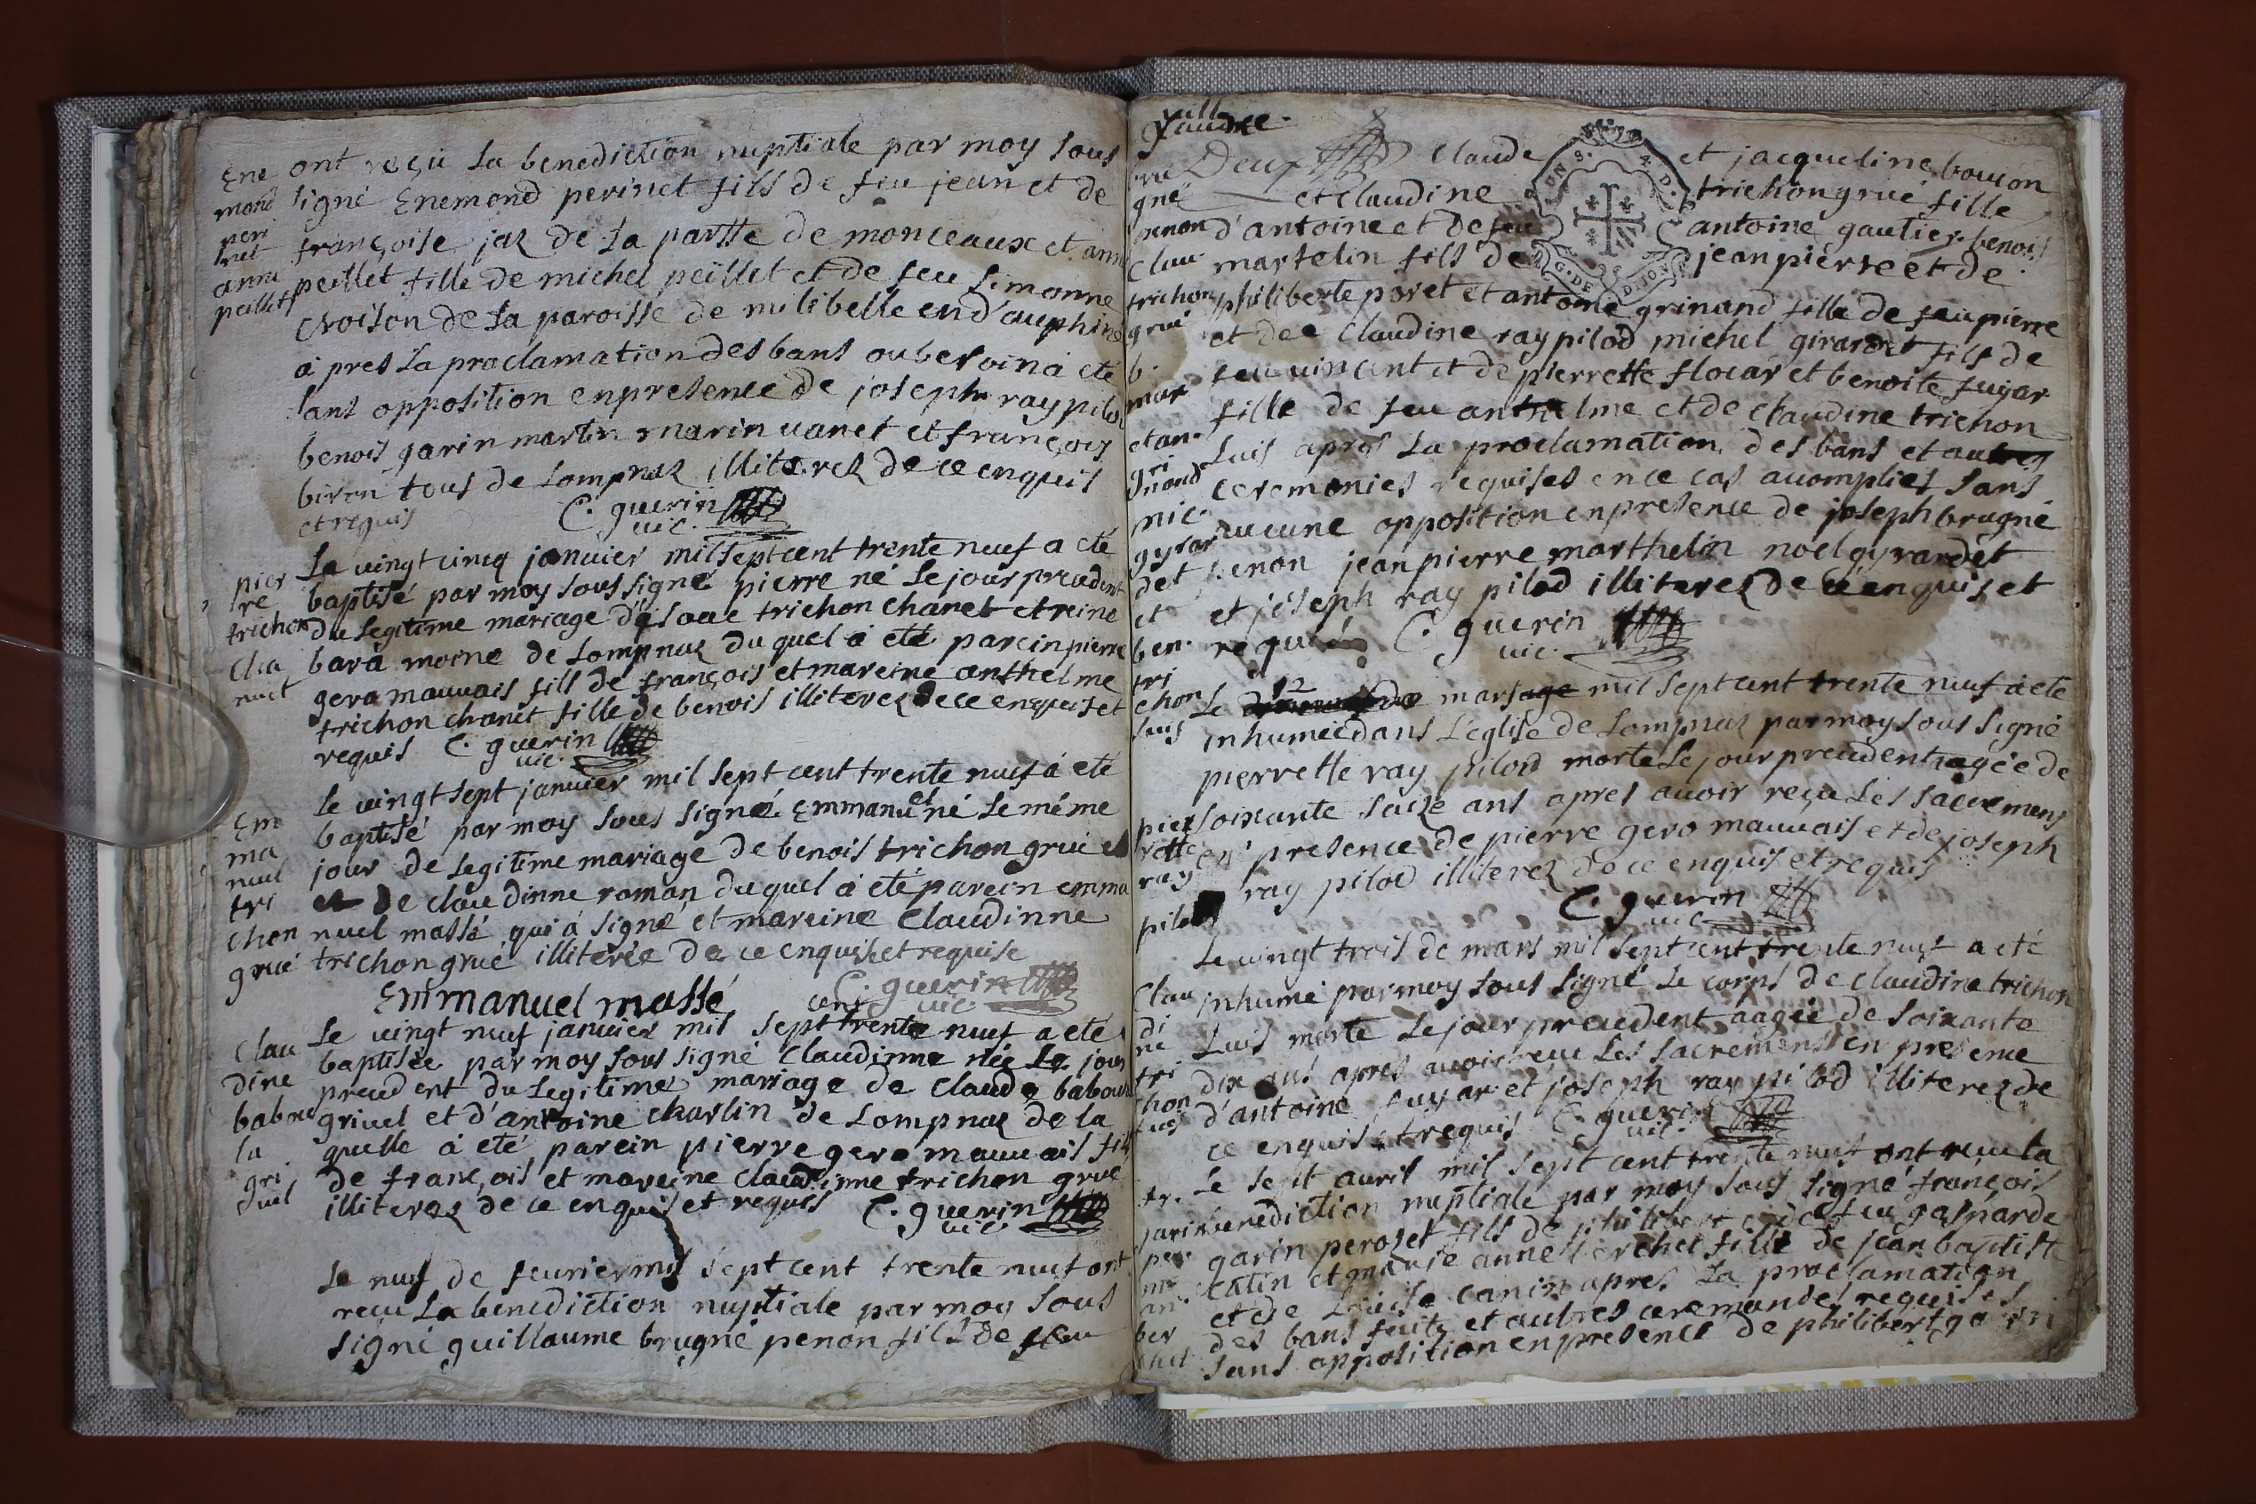 ont reçû la benediction nuptiale par moy sous
Ene
mond
peri
net
anne
peillet
signé Enemond perinet fils de feu jean et de
françoise jaz de la partte de monceaux et anne
peillet fille de michel peillet et de feu simonne
croison de la paroisse de en d'auphiné
a pres la proclamation des bans ou besoin a eté
sans opposition en presence de joseph ray pilod
benois garin martin marin vanet et françois
biron tous de Lompnaz illiterez de ce enquis
et requis C. guerin
vic.
pier
re
trichon
cha
nuet
Le vingt cinq janvier mil sept cent trente neuf a eté
baptisé par moy sous signé pierre né le jour precedent
du legitime mariage d'isaac trichon chanet et reine
bara moine de Lompnaz du quel a eté parein pierre
gero mauvais fils de françois et mareine anthelme
trichon chanet fille de benois illiterez de ce enquis et
requis C. guerin
vic.
Em
ma
nuel
tri
chon
grué
le vingt sept janvier mil sept cent trente neuf a eté
baptisé par moy sous signé Emmanuel né le même
jour de legitime mariage de benois trichon grué et
et de claudinne roman duquel a eté parein emma
nuel massé qui a signé et mareine Claudinne
trichon grué illiterée de ce enquise et requise
C. guerin
vic.
Emmanuel massé
cent
Clau
dine
babou
la
gri
vel
le vingt neuf janvier mil sept trente neuf a eté
baptisée par moy sous signé Claudinne née le jour
precedent du legitime mariage de Claude babou
grivel et d'antoine charlin de Lompnaz de la
quelle a eté parein pierre gero mauvais fils
de françois et mareine claudinne trichon grué
illiterez de ce enquis et requis C. guerin
vic.
le neuf de feurier mil sept cent trente neuf ont
recu la benediction nuptiale par moy sous
signé guillaume brugné penon fils de feu
guill
Claude et jacqueline boucon
et Claudine trichon grué fille
d'antoine et de feu antoine gautier. benois
martelin fils de jean pierre et de
philiberte poret et antoine grinand fille de feu pierre
et de Claudine ray pilod michel girardet fils de
feu vincent et de pierrette flocar et benoite fuyar
fille de feu anthelme et de claudine trichon
Luis aprés la proclamation des bans et autres
ceremonies requises en ce cas acomplies sans
aucune opposition en presence de joseph brugné
penon jean pierre marthelin noel gyrardet
et joseph ray pilod illiterez de ce enquis et
requis C. guerin
vic.
gné
penon
Clau
trichon
grué
b.
mar
et an.
gri
nand
mic.
gyrar
det
et
ben.
tri
chon
luis
Le 12 mars mil sept cent trente neuf a eté
inhumée dans l'église de Lompnaz par moy sous signé
pierrette ray pilod morte le jour precedent agée de
soixante seize ans apres avoir reçu les sacremens
en presence de pierre gero mauvais et de joseph
ray pilod illiterez de ce enquis et requis
C. guerin
vic.
pier
rette
ray
pilod
Le vingt trois de mars mil sept cent trente neuf a eté
inhumé par moy sous signé le corps de claudine trichon
Luis morte le jour precedent aagée de soixante
dix ans apres avoir reçu les sacremens en presence
d'antoine fuyar et joseph ray pilod illiterez de
ce enquis et requis C. guerin
vic.
Clau
di
ne
tri
chon
luis
Le sept avril mil sept cent trente neuf ont reçu la
benediction nuptiale par moy sous signé françois
garin peroset fils de philibert et de feu gasparde
catin et marie anne berchet fille de jean baptiste
et de Louise canin apres la proclamation
des bans faits et autres ceremonies requises
sans opposition en presence de philibert garin
fr.
garin
per.
an.
ber
chet